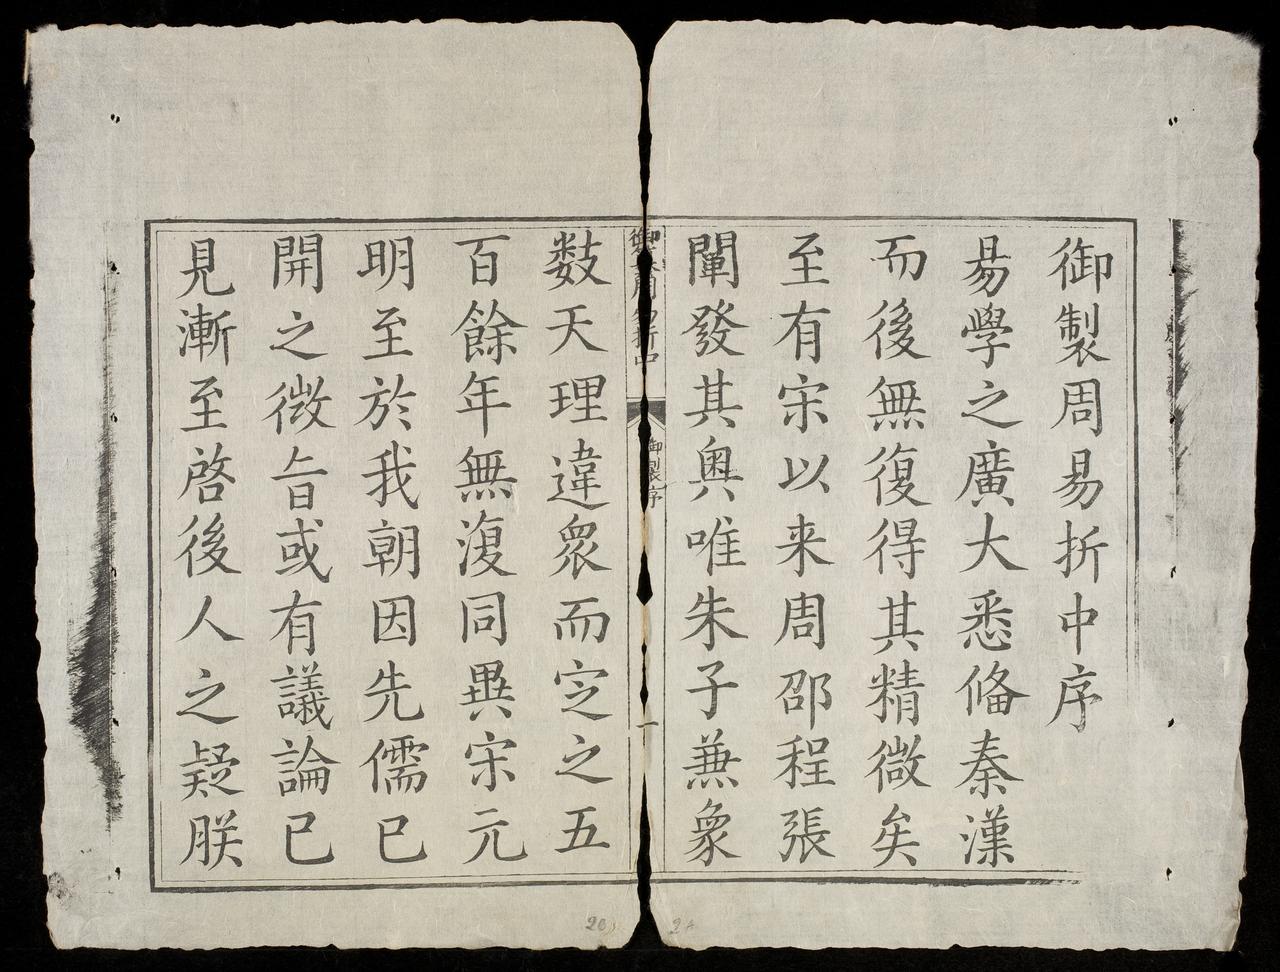 御製周易折中序
易學之廣大悉俻秦漢
而後無復得其精微矣
至有宋以来周邵程張
闡發其奥唯朱子兼象
数天理違衆而定之五
百餘年無復同異宋元
明至於我朝因先儒已
開之微旨或有議論已
見漸至啓後人之疑朕
御製序
一
2B
2A